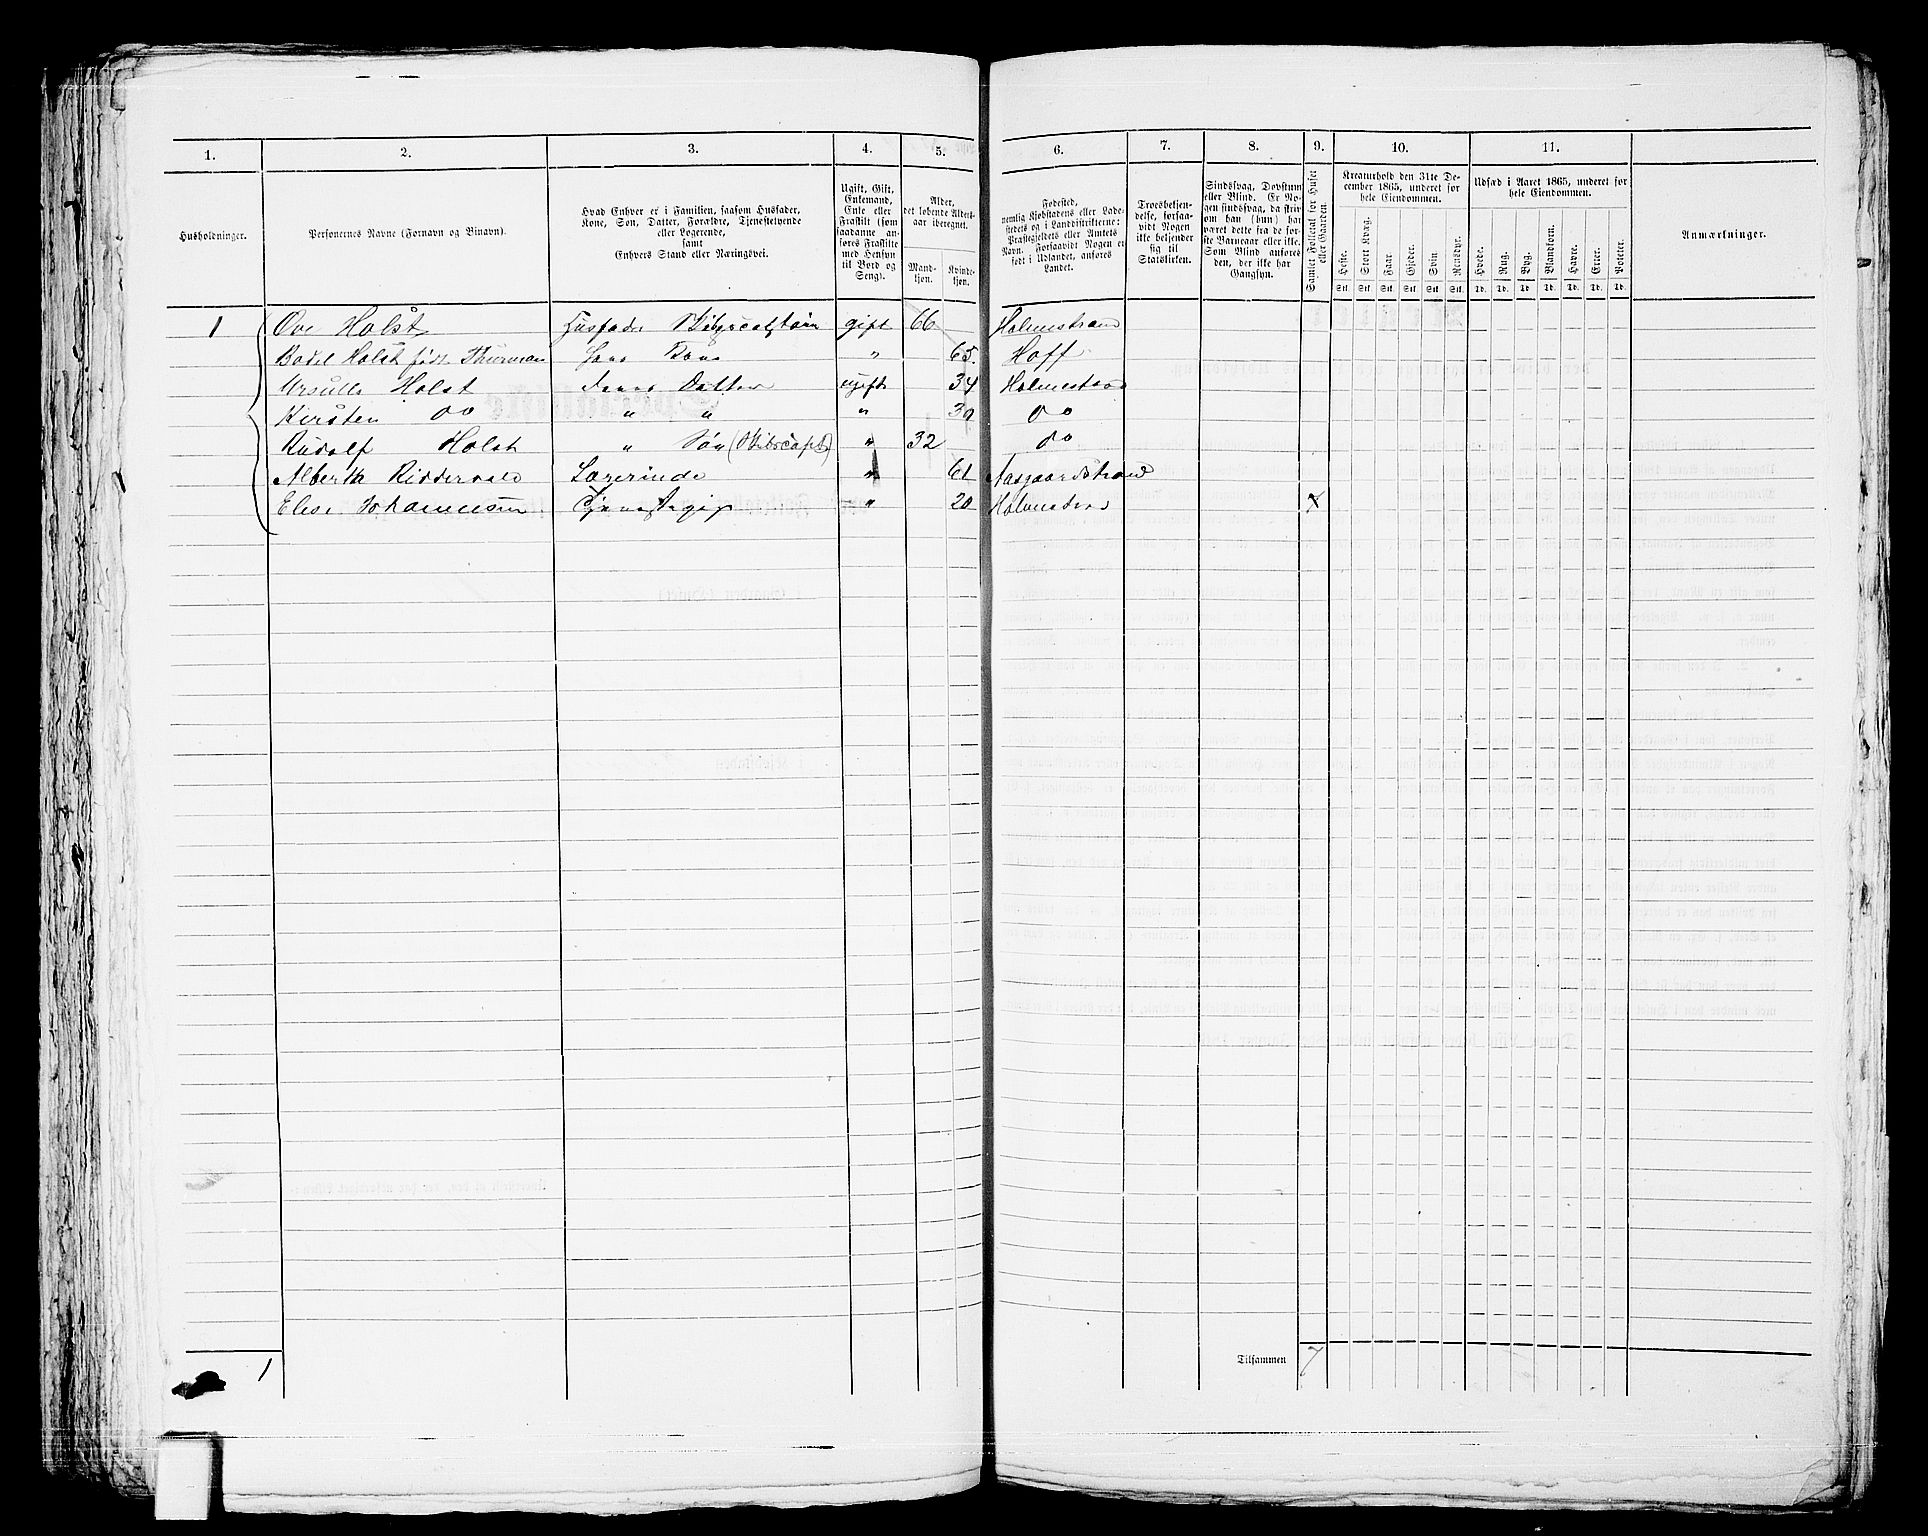 1. 2. 3. 4. 5. 6. 7. 8. 9. 10. 11.
Husholdninger.
Personernes Navne (Fornavn og Binavn).
Hvad Enhver er i Familien, saasom Husfader,
Kone, Søn, Datter, Forældre, Tjenestetyende
eller Logerende,
samt
Enhvers Stand eller Næringsvei.
Ugift, Gift,
Enkemand,
Enke eller
Fraskilt (som
saadanne an-
føres Fraskilte
med Hensyn
til Bord og
Seng).
Alder,
det løbende Alders-
aar iberegnet.
Mand-
kjøn.
Kvinde-
kjøn.
Fødested,
nemlig Kjøbstadens eller Lade-
stedets og i Landdistrikterne:
Præstegjeldets eller Amtets
Navn. Forsaavidt Nogen er
født i Udlandet, anføres
Landet.
Troesbekjen-
delse, forsaa-
vidt Nogen
ikke bekjender
sig til
Statskirken.
Sindssvag, Døvstum
eller Blind. Er No-
gen sindssvag, da skriv
om han (hun) har
været dette fra de før-
ste Barneaar eller ikke.
Som Blind anføres
den, der ikke har
Gangsyn.
Samlet Folketal for Huset
eller Gaarden.
Kreaturhold den 31te De-
cember 1865, underet for
hele Eiendommen.
Heste. Stort Kvæg. Faar. Gjeder. Svin. Rensdyr.
Stk. Stk. Stk. Stk. Stk. Stk.
Udsæd i Aaret 1865, underet for
hele Eiendommen.
Hvede. Rug. Byg. Blandkorn. Havre. Erter. Poteter.
Td. Td. Td. Td. Td. Td. Td.
Anmærkninger.
1 Ove Holst Husfader Skibscaptain gift 66 Holmestrand
Bodel Holst født Thurman Hans Kone " 65. Hoff
Ursulla Holst Datter ugift 34 Holmestrand
Kirsten do " " " 30 do
Rudolf Holst " Søn (Skibscapt) " 32 do
Riddervold Lærerinde " 61 Aasgaardstrand
Elise Johannesen Tjenestepige " 20 Holmestrand x
1
Tilsammen 7